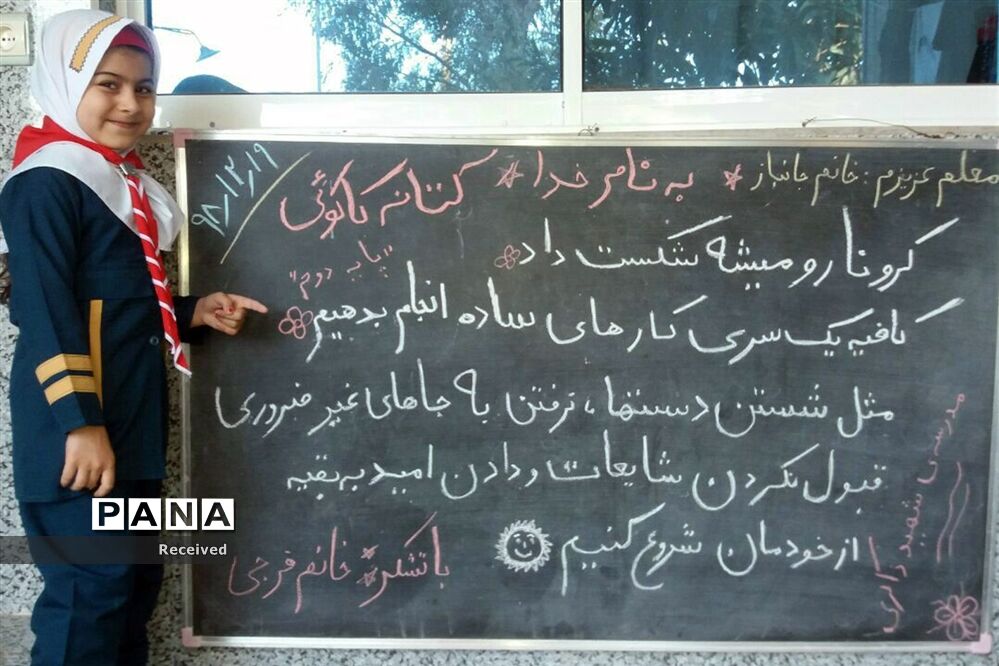 معلم عزیزم: خانم جانباز
به نام خدا
کتانه کائوئی
۹۸/۱۲/۱۹
کرونا رو میشه شکست داد
"پایه دوم"
کافیه یک سری کارهای ساده انجام بدهیم
مثل شستن دستها، نرفتن به جاهای غیر ضروری
قبول نکردن شایعات و دادن امید به بقیه
از خودمان شروع کنیم
با تشکر خانم فرجی
مدرسه‌ی شهید
PANA
Received